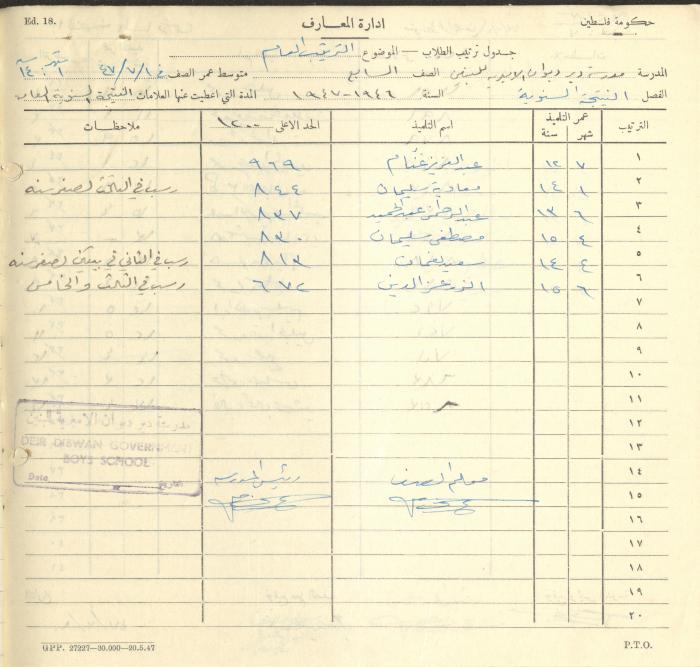 Ed. 18.
ادارة المعارف
حكومة فلسطين
جدول ترتيب الطلاب — الموضوع الترتيب العام
المدرسة مدرسة دير ديوان الاميرية للبنين الصف السابع متوسط عمر الصف في ٤٧/٧/١
الفصل النتيجة السنوية السنة ١٩٤٦-١٩٤٧ المدة التي اعطيت عنها العلامات النتيجة السنوية
الترتيب عمر التلميذ شهر سنة اسم التلميذ الحد الاعلى ١٢٠٠ ملاحظات
١ ٧ ١٢ عبد العزيز غنام ٩٦٩
٢ ١ ١٤ معاوية سليمان ٨٤٤ رسب في الثالث لصغر سنه
٣ ٦ ١٣ عبد الرحمن عبد الحميد ٨٣٧
٤ ٤ ١٥ مصطفى سليمان ٨٣٠
٥ ٤ ١٤ سعيد نعمان ٨١٣ رسب في الثاني لصغر سنه
٦ ٦ ١٥ عز الدين ٦٧٢ رسب في الثالث والخامس
٧
٨
٩
١٠
١١
١٢
١٣
١٤ معلم الصف رئيس المدرسة
١٥
١٦
١٧
١٨
١٩
٢٠
مدرسة دير ديوان الاميرية للبنين
DEIR DISWAN GOVERNMENT
BOYS SCHOOL
Date التاريخ
GPP. 27227—30.000—20.5.47
P.T.O.